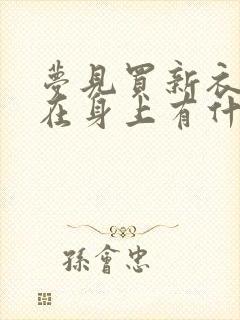 夢見買新衣
在身上有什
孫會忠